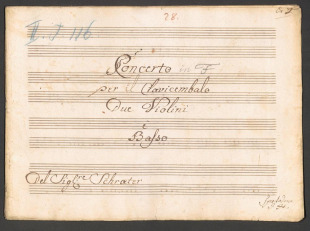 28.
II. J. 116
Concerto in F
per il Clavicembalo
Due Violini
e
Basso
Del Sig.re Schrœter